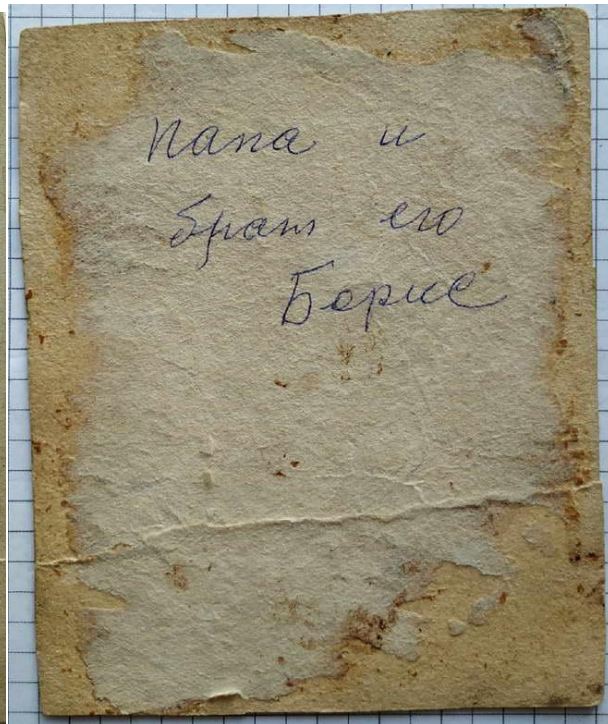 Папа и
брат его
Борис